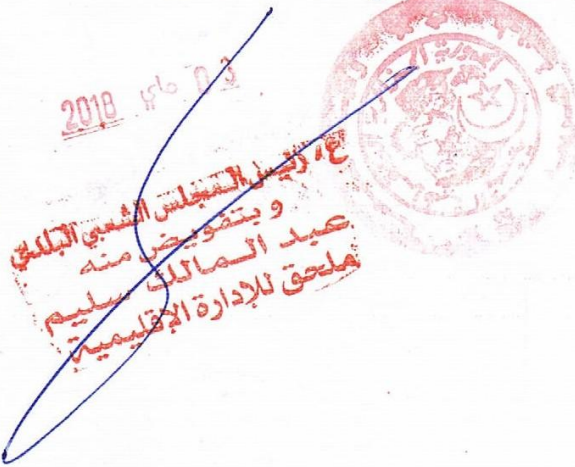 03 ماي 2018
ع/ رئيس المجلس الشعبي البلدي
و بتفويض منه
عبد المالك سليم
ملحق للإدارة الإقليمية